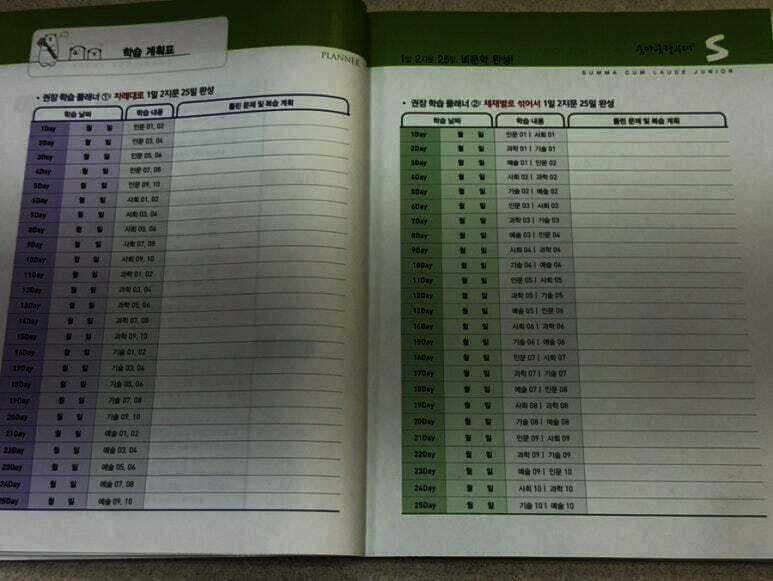 학습 계획표
PLANNER
• 권장 학습 플래너 ①: 차례대로 1일 2지문 25일 완성
학습 날짜 학습 내용 틀린 문제 및 복습 계획
1Day 월 일 인문 01, 02
2Day 월 일 인문 03, 04
3Day 월 일 인문 05, 06
4Day 월 일 인문 07, 08
5Day 월 일 인문 09, 10
6Day 월 일 사회 01, 02
7Day 월 일 사회 03, 04
8Day 월 일 사회 05, 06
9Day 월 일 사회 07, 08
10Day 월 일 사회 09, 10
11Day 월 일 과학 01, 02
12Day 월 일 과학 03, 04
13Day 월 일 과학 05, 06
14Day 월 일 과학 07, 08
15Day 월 일 과학 09, 10
16Day 월 일 기술 01, 02
17Day 월 일 기술 03, 04
18Day 월 일 기술 05, 06
19Day 월 일 기술 07, 08
20Day 월 일 기술 09, 10
21Day 월 일 예술 01, 02
22Day 월 일 예술 03, 04
23Day 월 일 예술 05, 06
24Day 월 일 예술 07, 08
25Day 월 일 예술 09, 10
1일 2지문 25일, 비문학 완성!
숨마쿰라우데®
SUMMA CUM LAUDE JUNIOR
• 권장 학습 플래너 ②: 제재별로 섞어서 1일 2지문 25일 완성
학습 날짜 학습 내용 틀린 문제 및 복습 계획
1Day 월 일 인문 01 | 사회 01
2Day 월 일 과학 01 | 기술 01
3Day 월 일 예술 01 | 인문 02
4Day 월 일 사회 02 | 과학 02
5Day 월 일 기술 02 | 예술 02
6Day 월 일 인문 03 | 사회 03
7Day 월 일 과학 03 | 기술 03
8Day 월 일 예술 03 | 인문 04
9Day 월 일 사회 04 | 과학 04
10Day 월 일 기술 04 | 예술 04
11Day 월 일 인문 05 | 사회 05
12Day 월 일 과학 05 | 기술 05
13Day 월 일 예술 05 | 인문 06
14Day 월 일 사회 06 | 과학 06
15Day 월 일 기술 06 | 예술 06
16Day 월 일 인문 07 | 사회 07
17Day 월 일 과학 07 | 기술 07
18Day 월 일 예술 07 | 인문 08
19Day 월 일 사회 08 | 과학 08
20Day 월 일 기술 08 | 예술 08
21Day 월 일 인문 09 | 사회 09
22Day 월 일 과학 09 | 기술 09
23Day 월 일 예술 09 | 인문 10
24Day 월 일 사회 10 | 과학 10
25Day 월 일 기술 10 | 예술 10